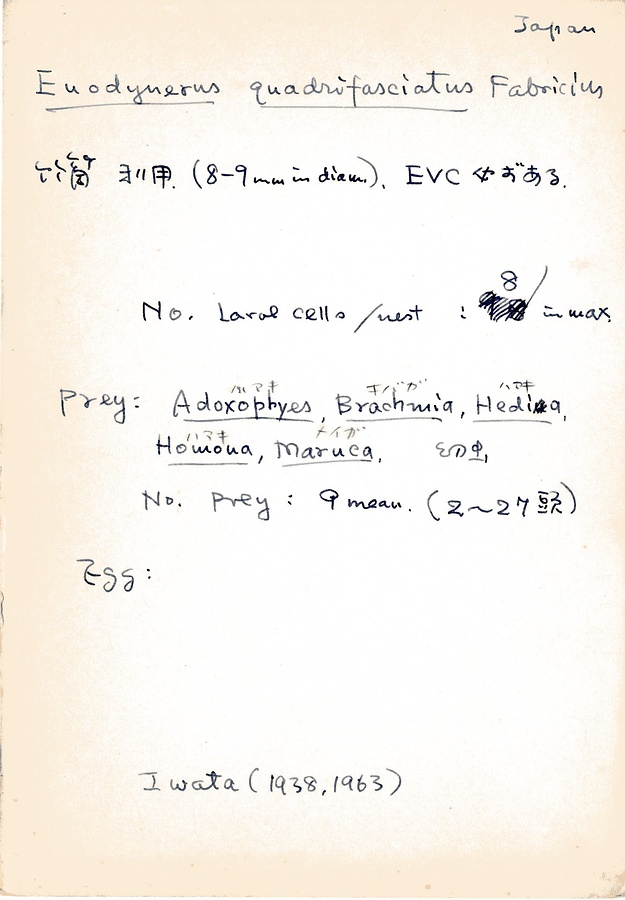 Japan
Euodynerus quadrifasciatus Fabricius
竹筒 利用. (8-9mm in diam.). EVC 必ずある.
8
No. Larval cells /nest : in max.
ハマキ キバガ ハマキ
Prey: Adoxophyes, Brachmia, Hedina,
ハマキ メイガ
Homona, Maruca, 幼虫,
No. Prey: 9 mean. (2~27頭)
Egg:
Iwata (1938, 1963)